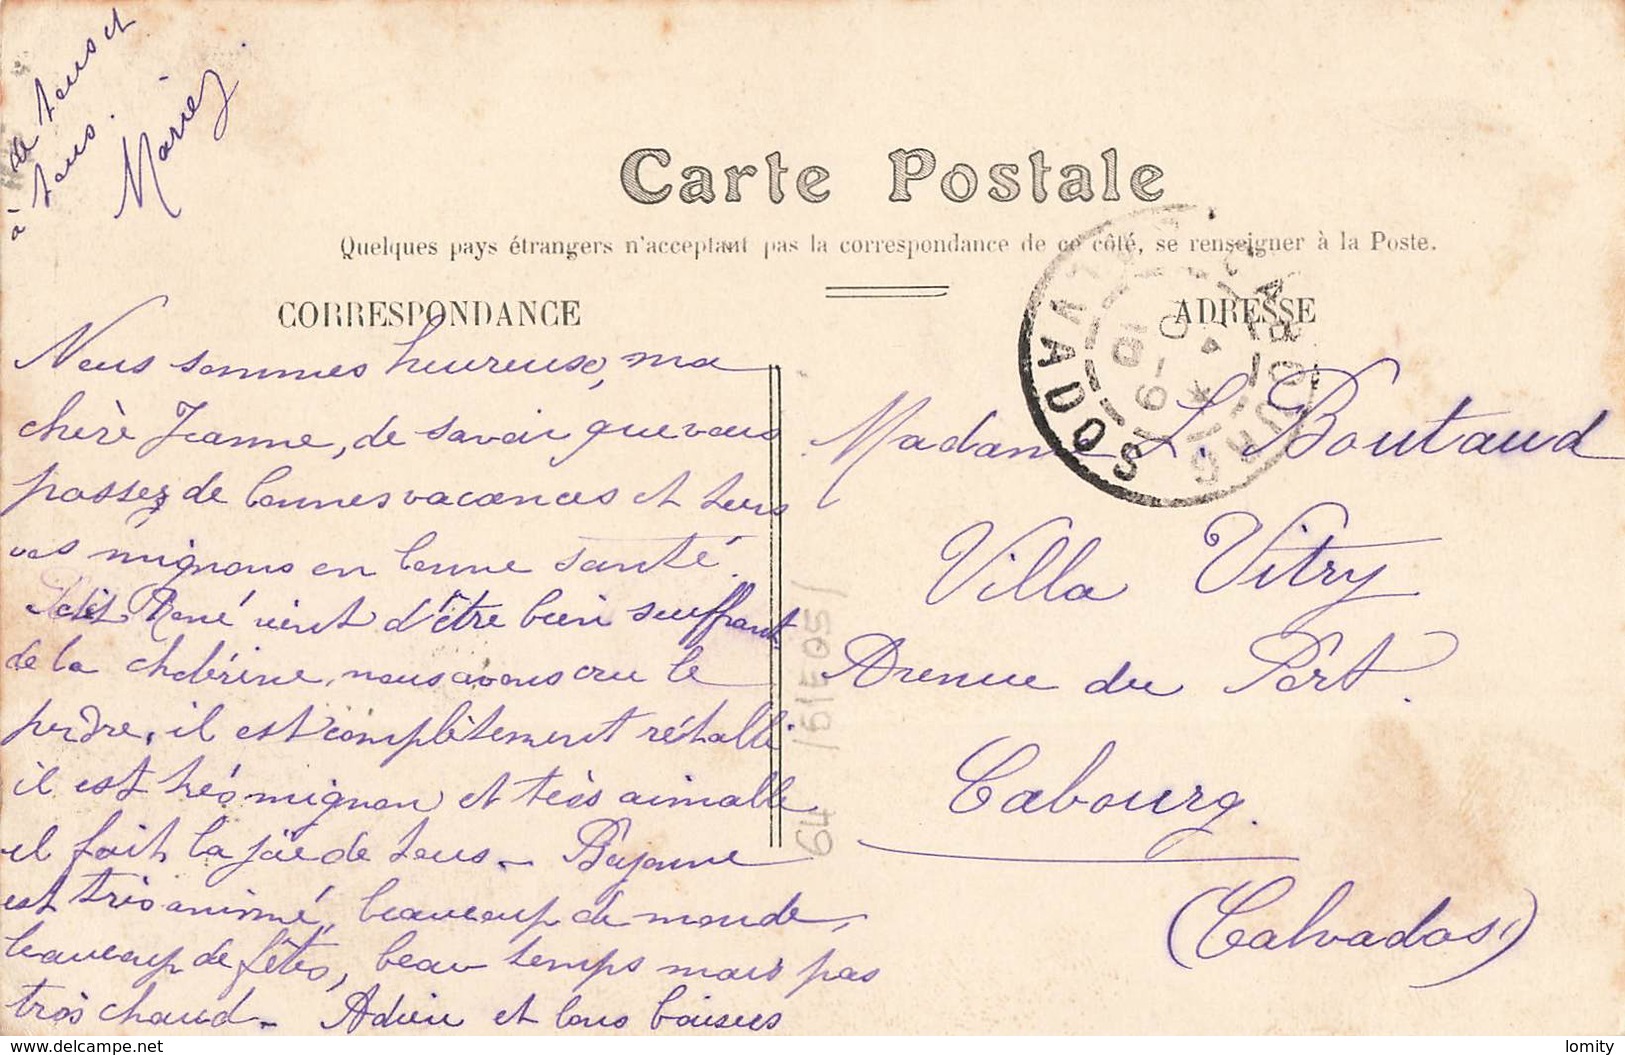 Carte Postale
Quelques pays étrangers n'acceptant pas la correspondance de ce côté, se renseigner à la Poste.
CORRESPONDANCE
ADRESSE
Nous sommes heureuse, ma
chère Jeanne, de savoir que vous
passez de bonnes vacances et tous
vos mignons en bonne santé.
Petit René vient d'être bien souffrant
de la cholérine, nous avons cru le
perdre, il est complètement rétabli
il est très mignon et très aimable
il fait la joie de tous - Bayonne
est très animé, beaucoup de monde,
beaucoup de fêtes, beau temps mais pas
très chaud - Adieu et bons baisers
de tous et
à tous.
Marie
Madame L. Boutaud
Villa Vitry
Avenue du Port.
Cabourg.
(Calvados)
CABOURG
CALVADOS
64 /61E05/
www.delcampe.net
lomity